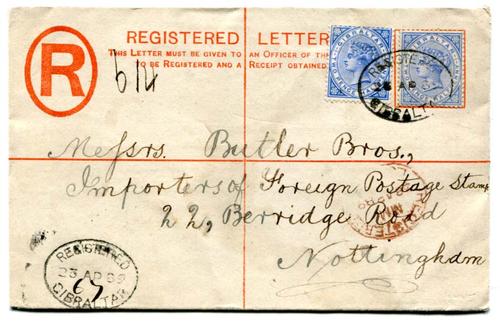 REGISTERED LETTER
THIS LETTER MUST BE GIVEN TO AN OFFICER OF THE
TO BE REGISTERED AND A RECEIPT OBTAINED
R
614
GIBRALTAR
REGISTERED
23 AP 89
GIBRALTAR
Messrs. Butler Bros.,
Importers of Foreign Postage Stamp
22, Berridge Road
Nottingham
REGISTERED
23 AP 89
67
GIBRALTAR